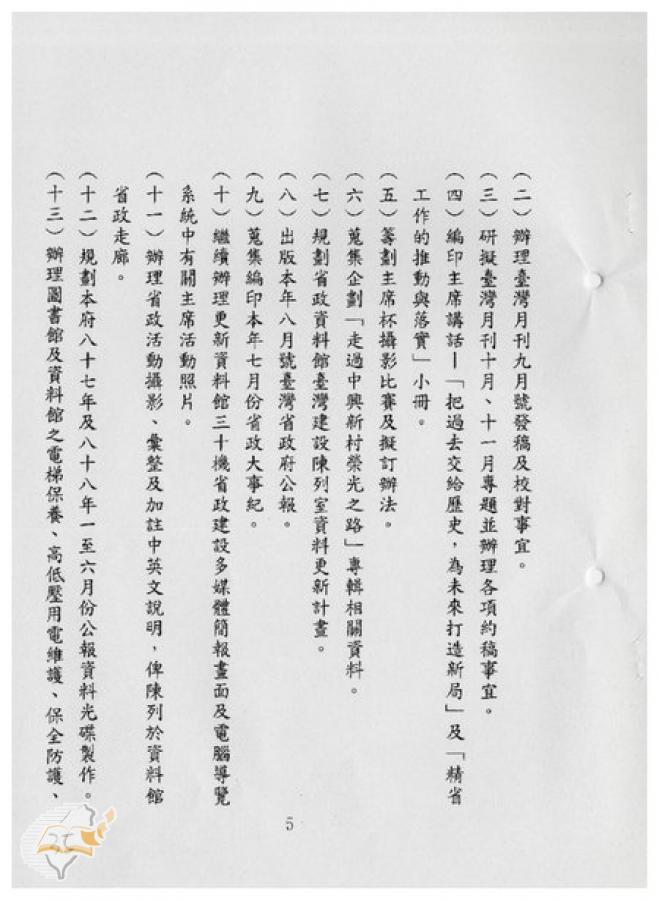 (二)辦理臺灣月刊九月號發稿及校對事宜。
(三)研擬臺灣月刊十月、十一月專題並辦理各項約稿事宜。
(四)編印主席講話—「把過去交給歷史，為未來打造新局」及「精省
工作的推動與落實」小冊。
(五)籌劃主席杯攝影比賽及擬訂辦法。
(六)蒐集企劃「走過中興新村榮光之路」專輯相關資料。
(七)規劃省政資料館臺灣建設陳列室資料更新計畫。
(八)出版本年八月號臺灣省政府公報。
(九)蒐集編印本年七月份省政大事紀。
(十)繼續辦理更新資料館三十機省政建設多媒體簡報畫面及電腦導覽
系統中有關主席活動照片。
(十一)辦理省政活動攝影、彙整及加註中英文說明，俾陳列於資料館
省政走廊。
(十二)規劃本府八十七年及八十八年一至六月份公報資料光碟製作。
(十三)辦理圖書館及資料館之電梯保養、高低壓用電維護、保全防護、
5